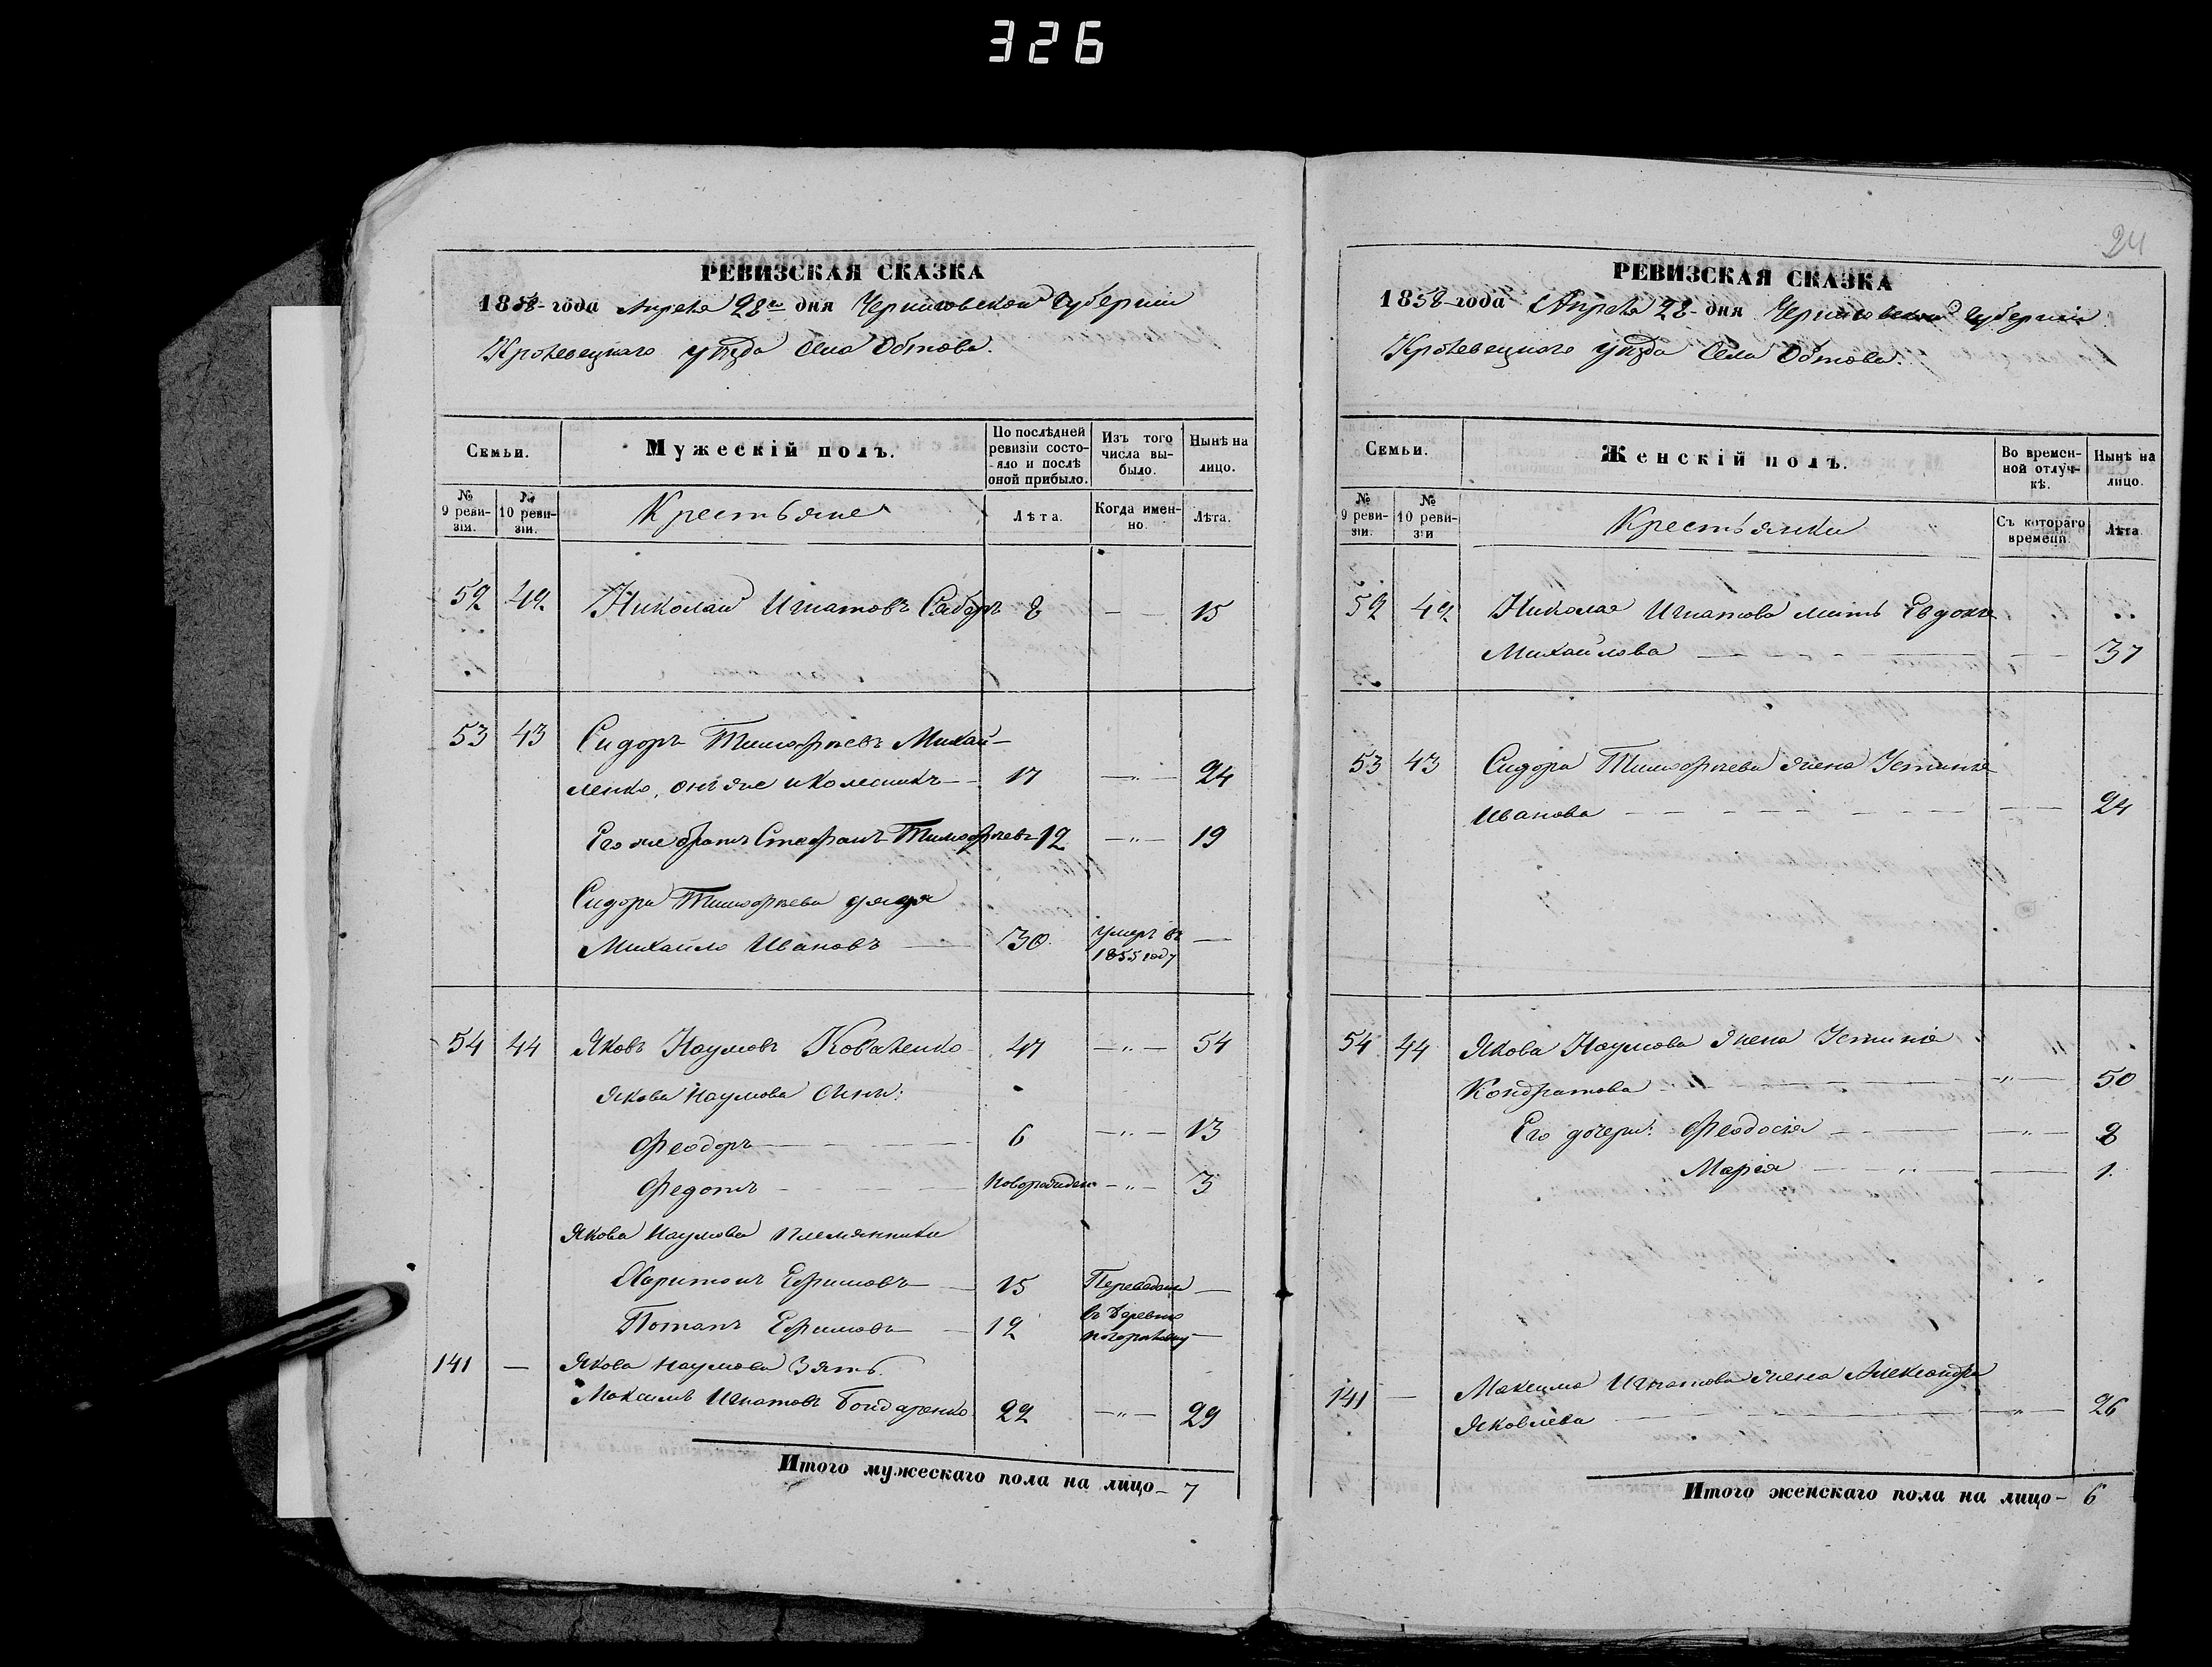 326
РЕВИЗСКАЯ СКАЗКА
1858 года Апреля 28го дня Черниговской Губернии
Кролевецкаго уѣзда Села Обтова.
Семьи.
Мужескій полъ.
По послѣдней ревизіи состояло и послѣ оной прибыло.
Изъ того числа выбыло.
Нынѣ на лицо.
№ 9 ревизія.
№ 10 ревизіи.
Крестьяне
Лѣта.
Когда именно.
Лѣта.
52 42 Николай Игнатовъ 8 — — 15
53 43 Сидоръ Тимофѣевъ Михай-
ленко, онъ же и Колесникъ — 17 —"— 24
Его же братъ Стефанъ Тимофѣевъ 12 —"— 19
Сидора Тимофѣева дядя
Михайло Ивановъ — 30 умеръ въ 1855 году —
54 44 Яковъ Наумовъ Коваленко 47 —"— 54
Якова Наумова сины:
Феодоръ 6 —"— 13
Федотъ новорожден —"— 3
Якова Наумова племянники
Харитонъ Ефимовъ — 15 Переведены —
Потапъ Ефимовъ — 12 въ деревню —
141 — Якова Наумова Зять
Максимъ Игнатовъ Бондаренко 22 —"— 29
Итого мужескаго пола на лицо— 7
24
РЕВИЗСКАЯ СКАЗКА
1858 года Апреля 28 дня Черниговской Губернии
Кролевецкого уѣзда Села Обтова.
Семьи.
Женскій полъ.
Во временной отлучкѣ.
Нынѣ на лицо.
№ 9 ревизіи.
№ 10 ревизіи
Крестьянки
Съ котораго времени.
Лѣта.
52 42 Николая Игнатова мать Евдокія
Михайлова — 37
53 43 Сидора Тимофѣева жена Устинія
Иванова — 24
54 44 Якова Наумова жена Устинія
Кондратова —"— 50
Его дочери: Феодосія —"— 8
Марія —"— 1.
141 — Максима Игнатова жена Александра
Яковлева —"— 26
Итого женскаго пола на лицо— 6